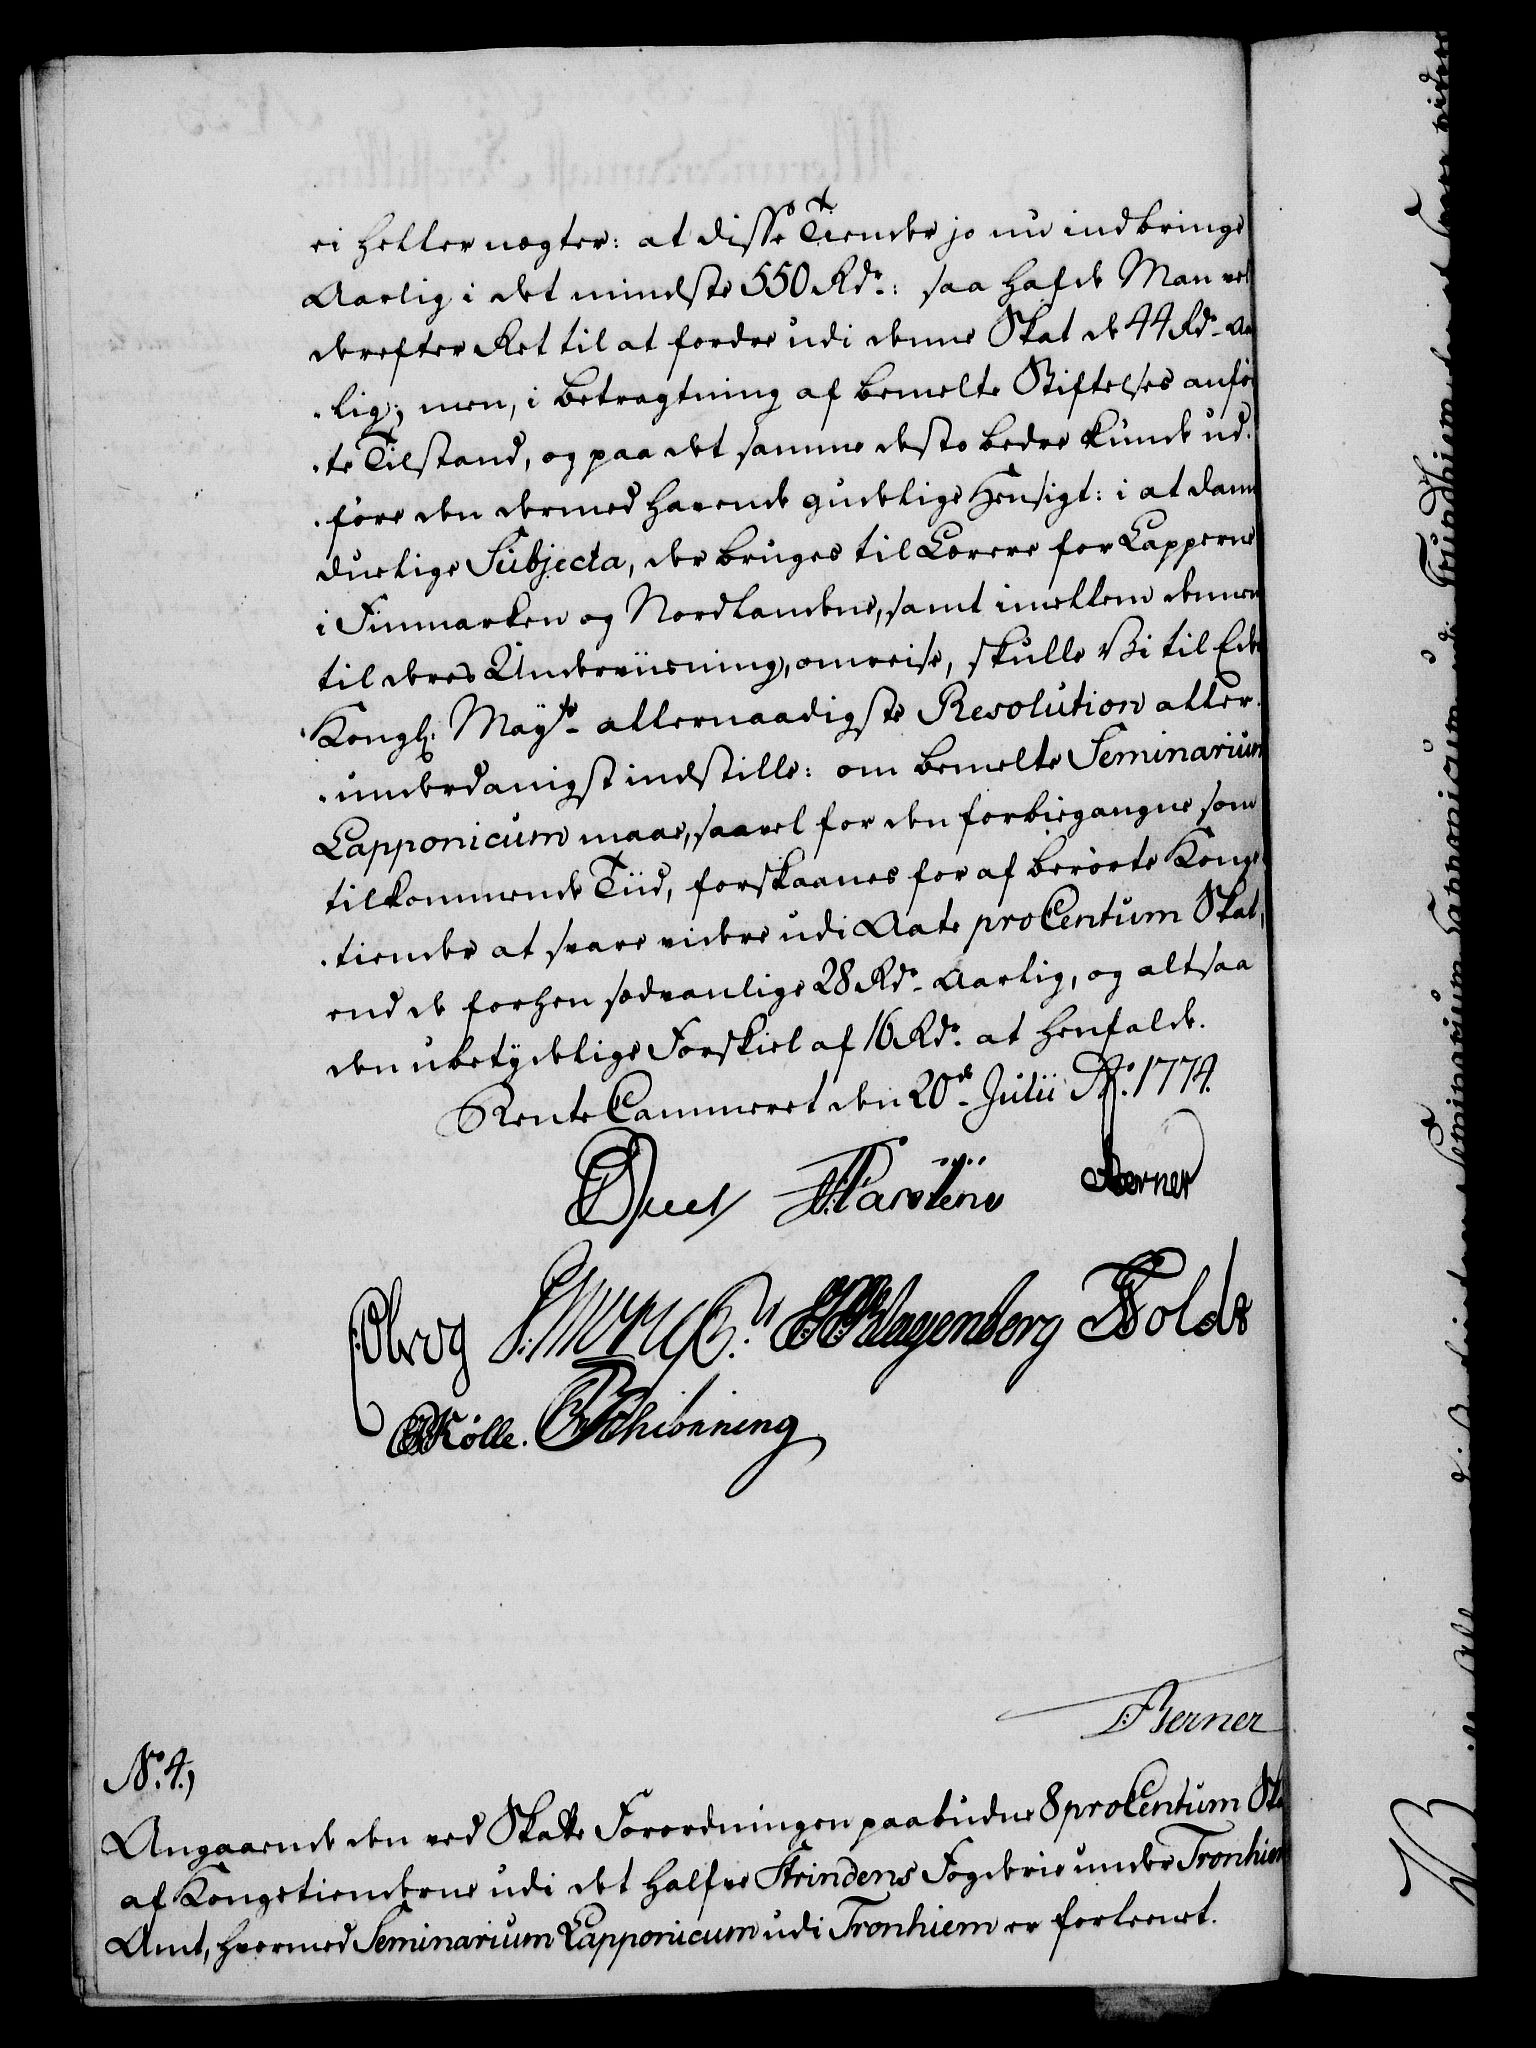 ei heller nægter: at disse Tiender jo nu indbringe
Aarlig i det mindste 550 Rdr: saa hafde Man vel
derefter Ret til at fordre udi denne Skat de 44 Rdr Aar
lig; men, i betragtning af bemelte Stiftelses anfør
te Tilstand, og paa det samme desto bedre kunde ud-
føre den dermed havende gudelige Hensigt: i at danne
duelige Subjecta, der bruges til Lærere for Lapperne
i Finmarken og Nordlandene, samt imellem dennem
til deres Underviisning, omreise, skulle Vi til Eders
Kongl: Mayts allernaadigste Resolution aller-
underdanigst indstille: om bemelte Seminarium
Lapponicum maae, saavel for den forbiegangne som
tilkommende Tiid, forskaanes for af berørte Konge
tiender at svare videre udi Aate proCentum Skat,
end de forhen sædvanlige 28 Rdr Aarlig, og altsaa
den ubetydelige Forskiel af 16 Rdr at henfalde.
Rente Cammeret den 20de Julii Ao 1774.
Berner
Klagenberg
Kölle. Schiönning
Berner
No. 4.,
Angaaende den ved Skatte Forordningen paabudne 8 proCentum Skat
af Kongetienderne udi det halfve Strindens Fogderie under Tronhiems
Amt, hvormed Seminarium Lapponicum udi Tronhiem er forleenet.